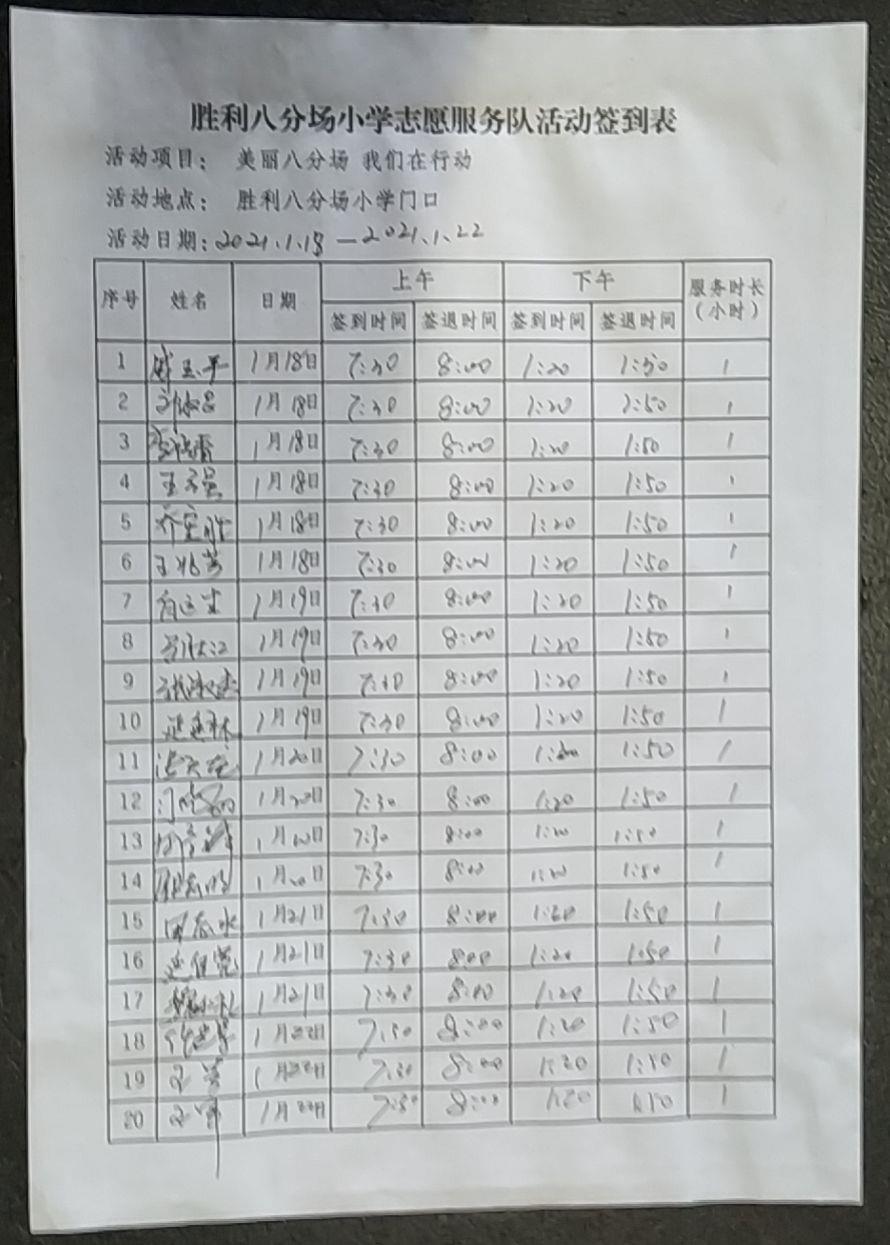 胜利八分场小学志愿服务队活动签到表
活动项目： 美丽八分场 我们在行动
活动地点： 胜利八分场小学门口
活动日期：2021.1.18 — 2021.1.22
序号 姓名 日期 上午 下午 服务时长（小时）
签到时间 签退时间 签到时间 签退时间
1 1月18日 7:30 8:00 1:20 1:50 1
2 1月18日 7:30 8:00 1:20 1:50 1
3 1月18日 7:30 8:00 1:20 1:50 1
4 1月18日 7:30 8:00 1:20 1:50 1
5 1月18日 7:30 8:00 1:20 1:50 1
6 1月18日 7:30 8:00 1:20 1:50 1
7 1月19日 7:30 8:00 1:20 1:50 1
8 1月19日 7:30 8:00 1:20 1:50 1
9 1月19日 7:30 8:00 1:20 1:50 1
10 1月19日 7:30 8:00 1:20 1:50 1
11 1月20日 7:30 8:00 1:20 1:50 1
12 1月20日 7:30 8:00 1:20 1:50 1
13 1月20日 7:30 8:00 1:20 1:50 1
14 1月20日 7:30 8:00 1:20 1:50 1
15 1月21日 7:30 8:00 1:20 1:50 1
16 1月21日 7:30 8:00 1:20 1:50 1
17 1月21日 7:30 8:00 1:20 1:50 1
18 1月22日 7:30 8:00 1:20 1:50 1
19 1月22日 7:30 8:00 1:20 1:50 1
20 1月22日 7:30 8:00 1:20 1:50 1